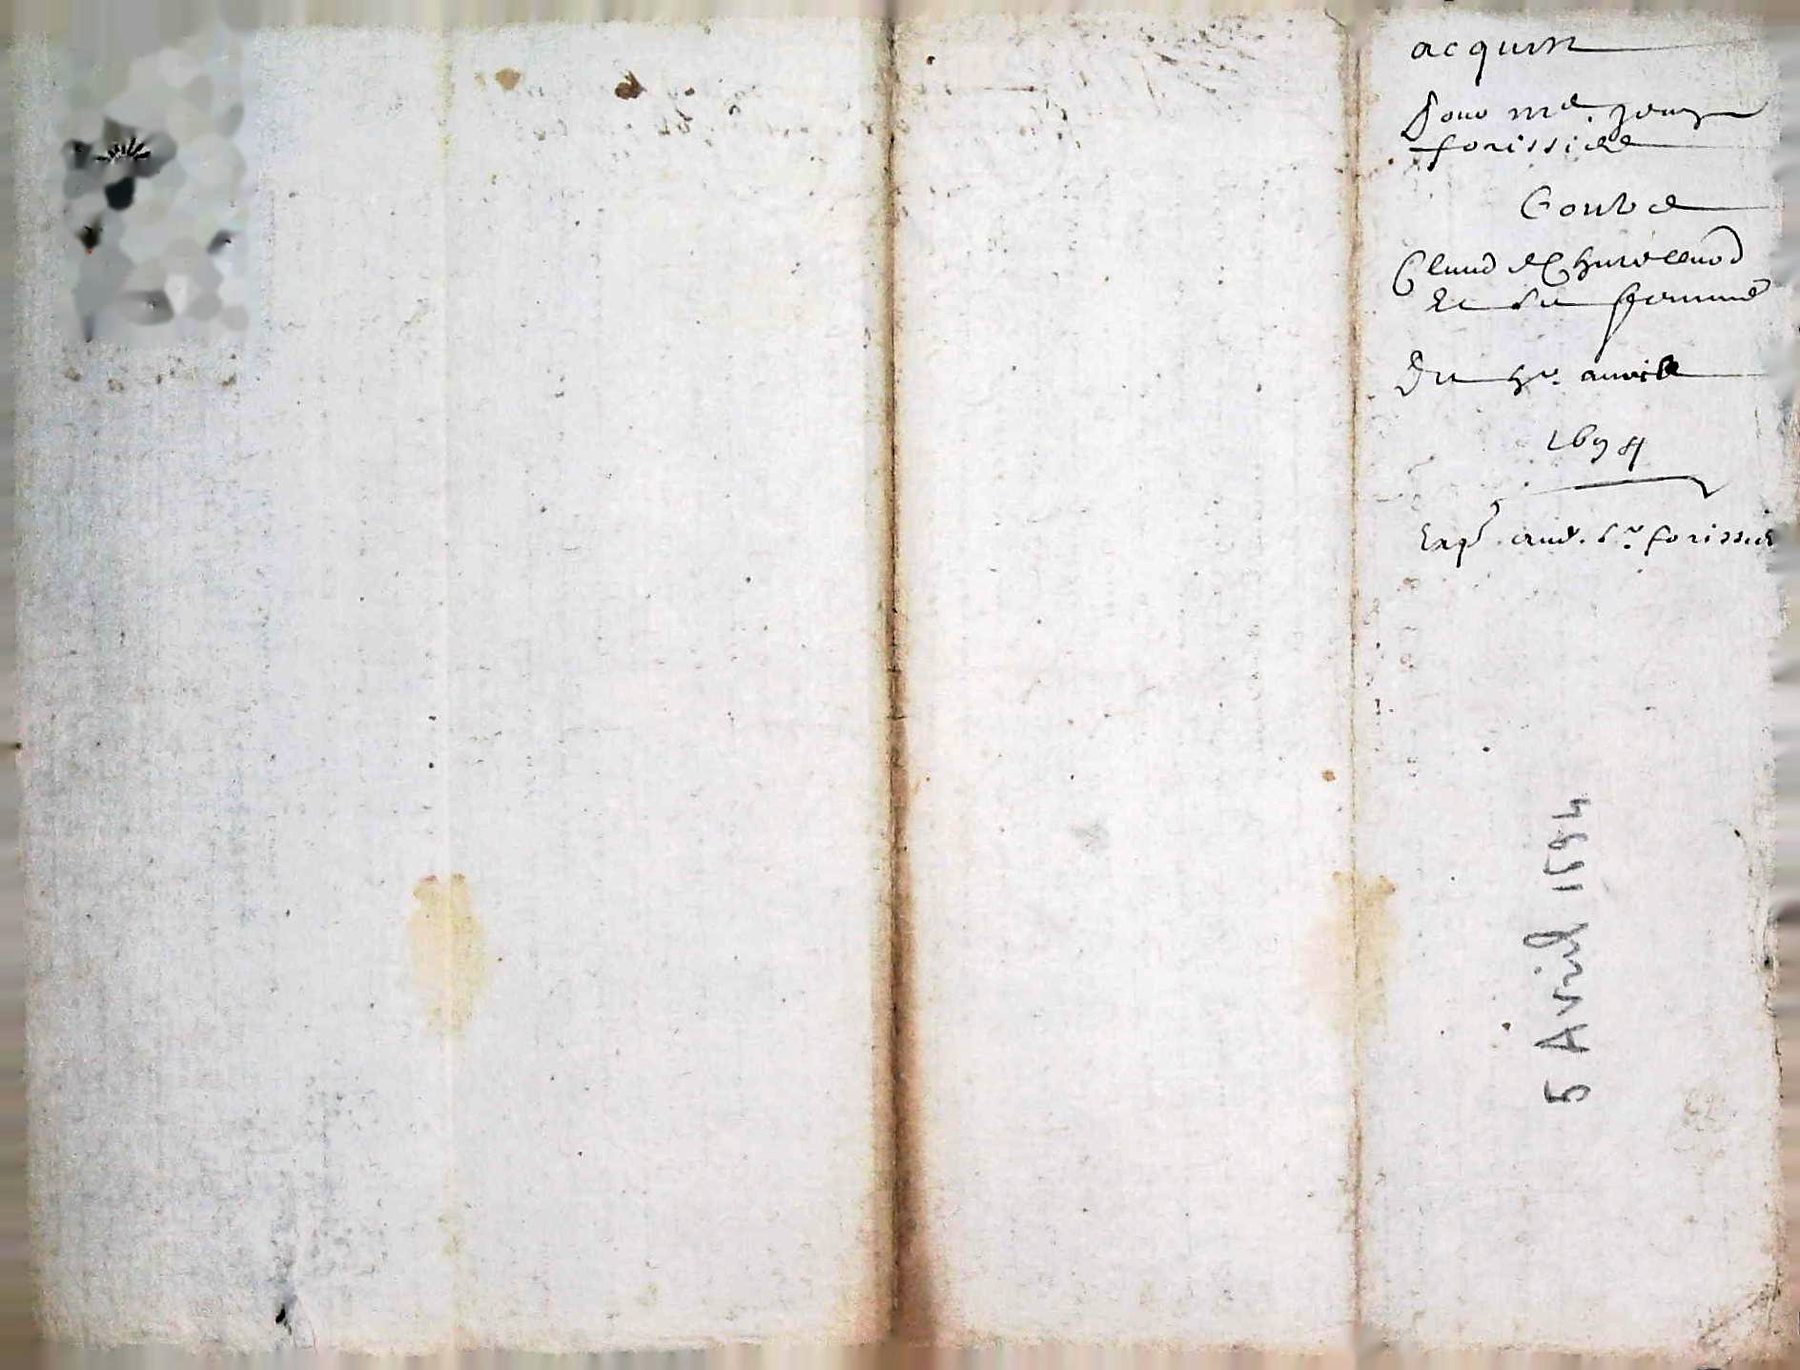 acquis
Pour me. Jean
forissier
Contre
Claud
et sa femme
Du 5e. avril
1694
exp. aud. Sr. forissier
5 Avril 1694